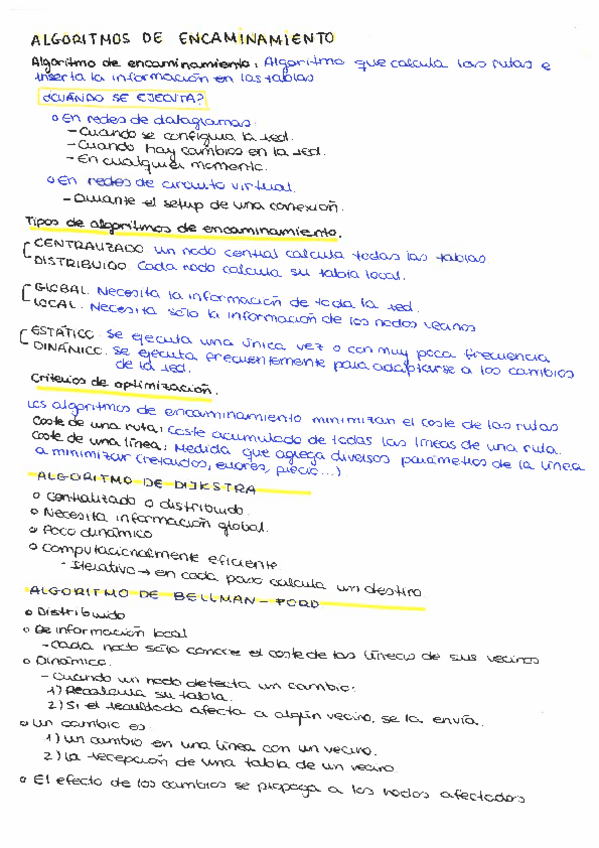 ALGORITMOS DE ENCAMINAMIENTO
Algoritmo de encaminamiento: Algoritmo que calcula las rutas e
inserta la información en las tablas
¿CUÁNDO SE EJECUTA?
o En redes de datagramas:
- Cuando se configura la red.
- Cuando hay cambios en la red.
- En cualquier momento.
o En redes de circuito virtual.
- Durante el setup de una conexión.
Tipos de algoritmos de encaminamiento.
CENTRALIZADO un nodo central calcula todas las tablas
DISTRIBUIDO Cada nodo calcula su tabla local.
GLOBAL. Necesita la información de toda la red.
LOCAL. Necesita sólo la información de los nodos vecinos
ESTÁTICO. Se ejecuta una única vez o con muy poca frecuencia
DINÁMICO. Se ejecuta frecuentemente para adaptarse a los cambios
de la red.
Criterios de optimización.
Los algoritmos de encaminamiento minimizan el coste de las rutas
Coste de una ruta: Coste acumulado de todas las líneas de una ruta.
Coste de una línea: Medida que agrega diversos parámetros de la línea
a minimizar (retardos, errores, precio...)
ALGORITMO DE DIJKSTRA
o Centralizado o distribuido.
o Necesita información global.
o Poco dinámico
o Computacionalmente eficiente.
- Iterativo → en cada paso calcula un destino
ALGORITMO DE BELLMAN-FORD
o Distribuido
o De información local
- Cada nodo sólo conoce el coste de las líneas de sus vecinos
o Dinámico.
- Cuando un nodo detecta un cambio:
1) Recalcula su tabla.
2) Si el resultado afecta a algún vecino, se la envía.
o Un cambio es:
1) un cambio en una línea con un vecino.
2) la recepción de una tabla de un vecino.
o El efecto de los cambios se propaga a los nodos afectados